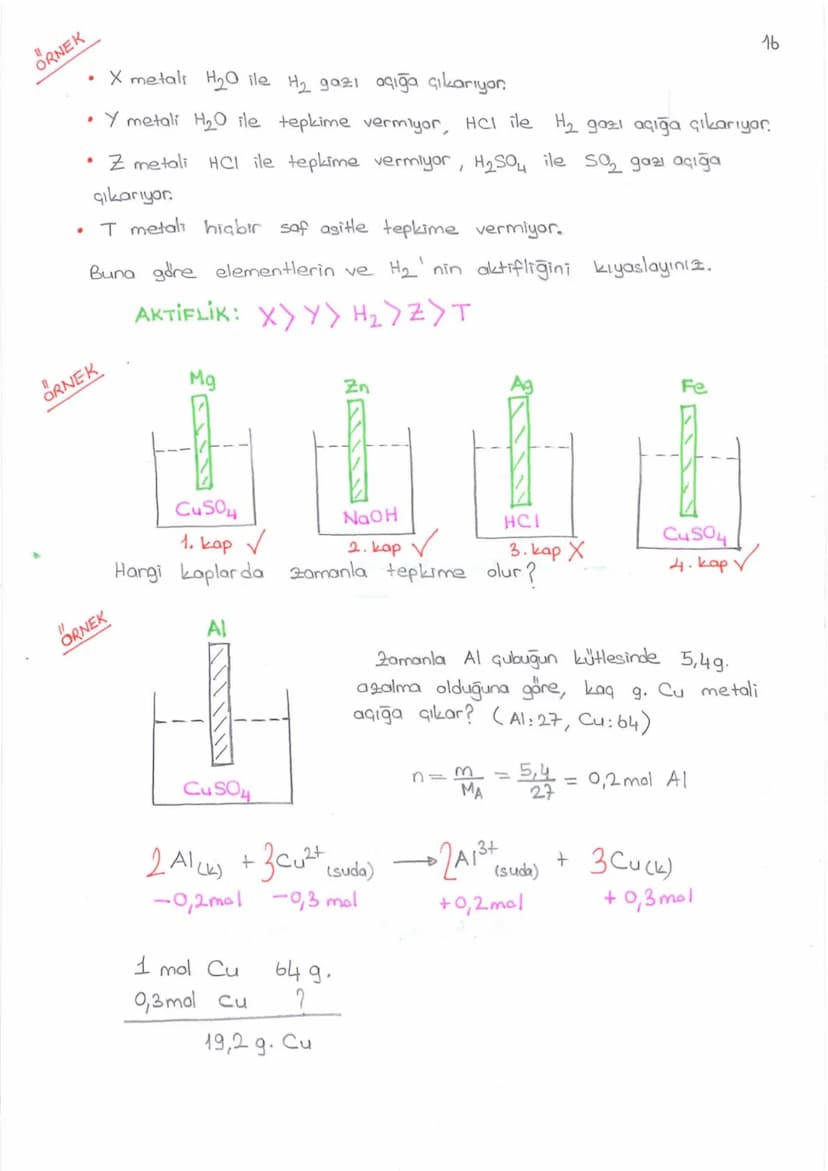 16
ÖRNEK
• X metali H₂O ile H₂ gazı açığa çıkarıyor.
• Y metali H₂O ile tepkime vermiyor, HCl ile H₂ gazı açığa çıkarıyor.
• Z metali HCl ile tepkime vermiyor, H₂SO₄ ile SO₂ gazı açığa
çıkarıyor.
• T metali hiçbir saf asitle tepkime vermiyor.
Buna göre elementlerin ve H₂'nin aktifliğini kıyaslayınız.
AKTİFLİK: X > Y > H₂ > Z > T
ÖRNEK
Mg Zn Ag Fe
CuSO₄ NaOH HCl CuSO₄
1. kap ✓ 2. kap ✓ 3. kap X 4. kap ✓
Hangi kaplarda zamanla tepkime olur?
ÖRNEK
Al
CuSO₄
Zamanla Al çubuğun kütlesinde 5,4g.
azalma olduğuna göre, kaç g. Cu metali
açığa çıkar? (Al:27, Cu:64)
n = m/MA = 5,4/27 = 0,2 mol Al
2Al(k) + 3Cu²⁺(suda) → 2Al³⁺(suda) + 3Cu(k)
-0,2mol -0,3 mol +0,2mol +0,3mol
1 mol Cu 64 g.
0,3mol Cu ?
19,2 g. Cu